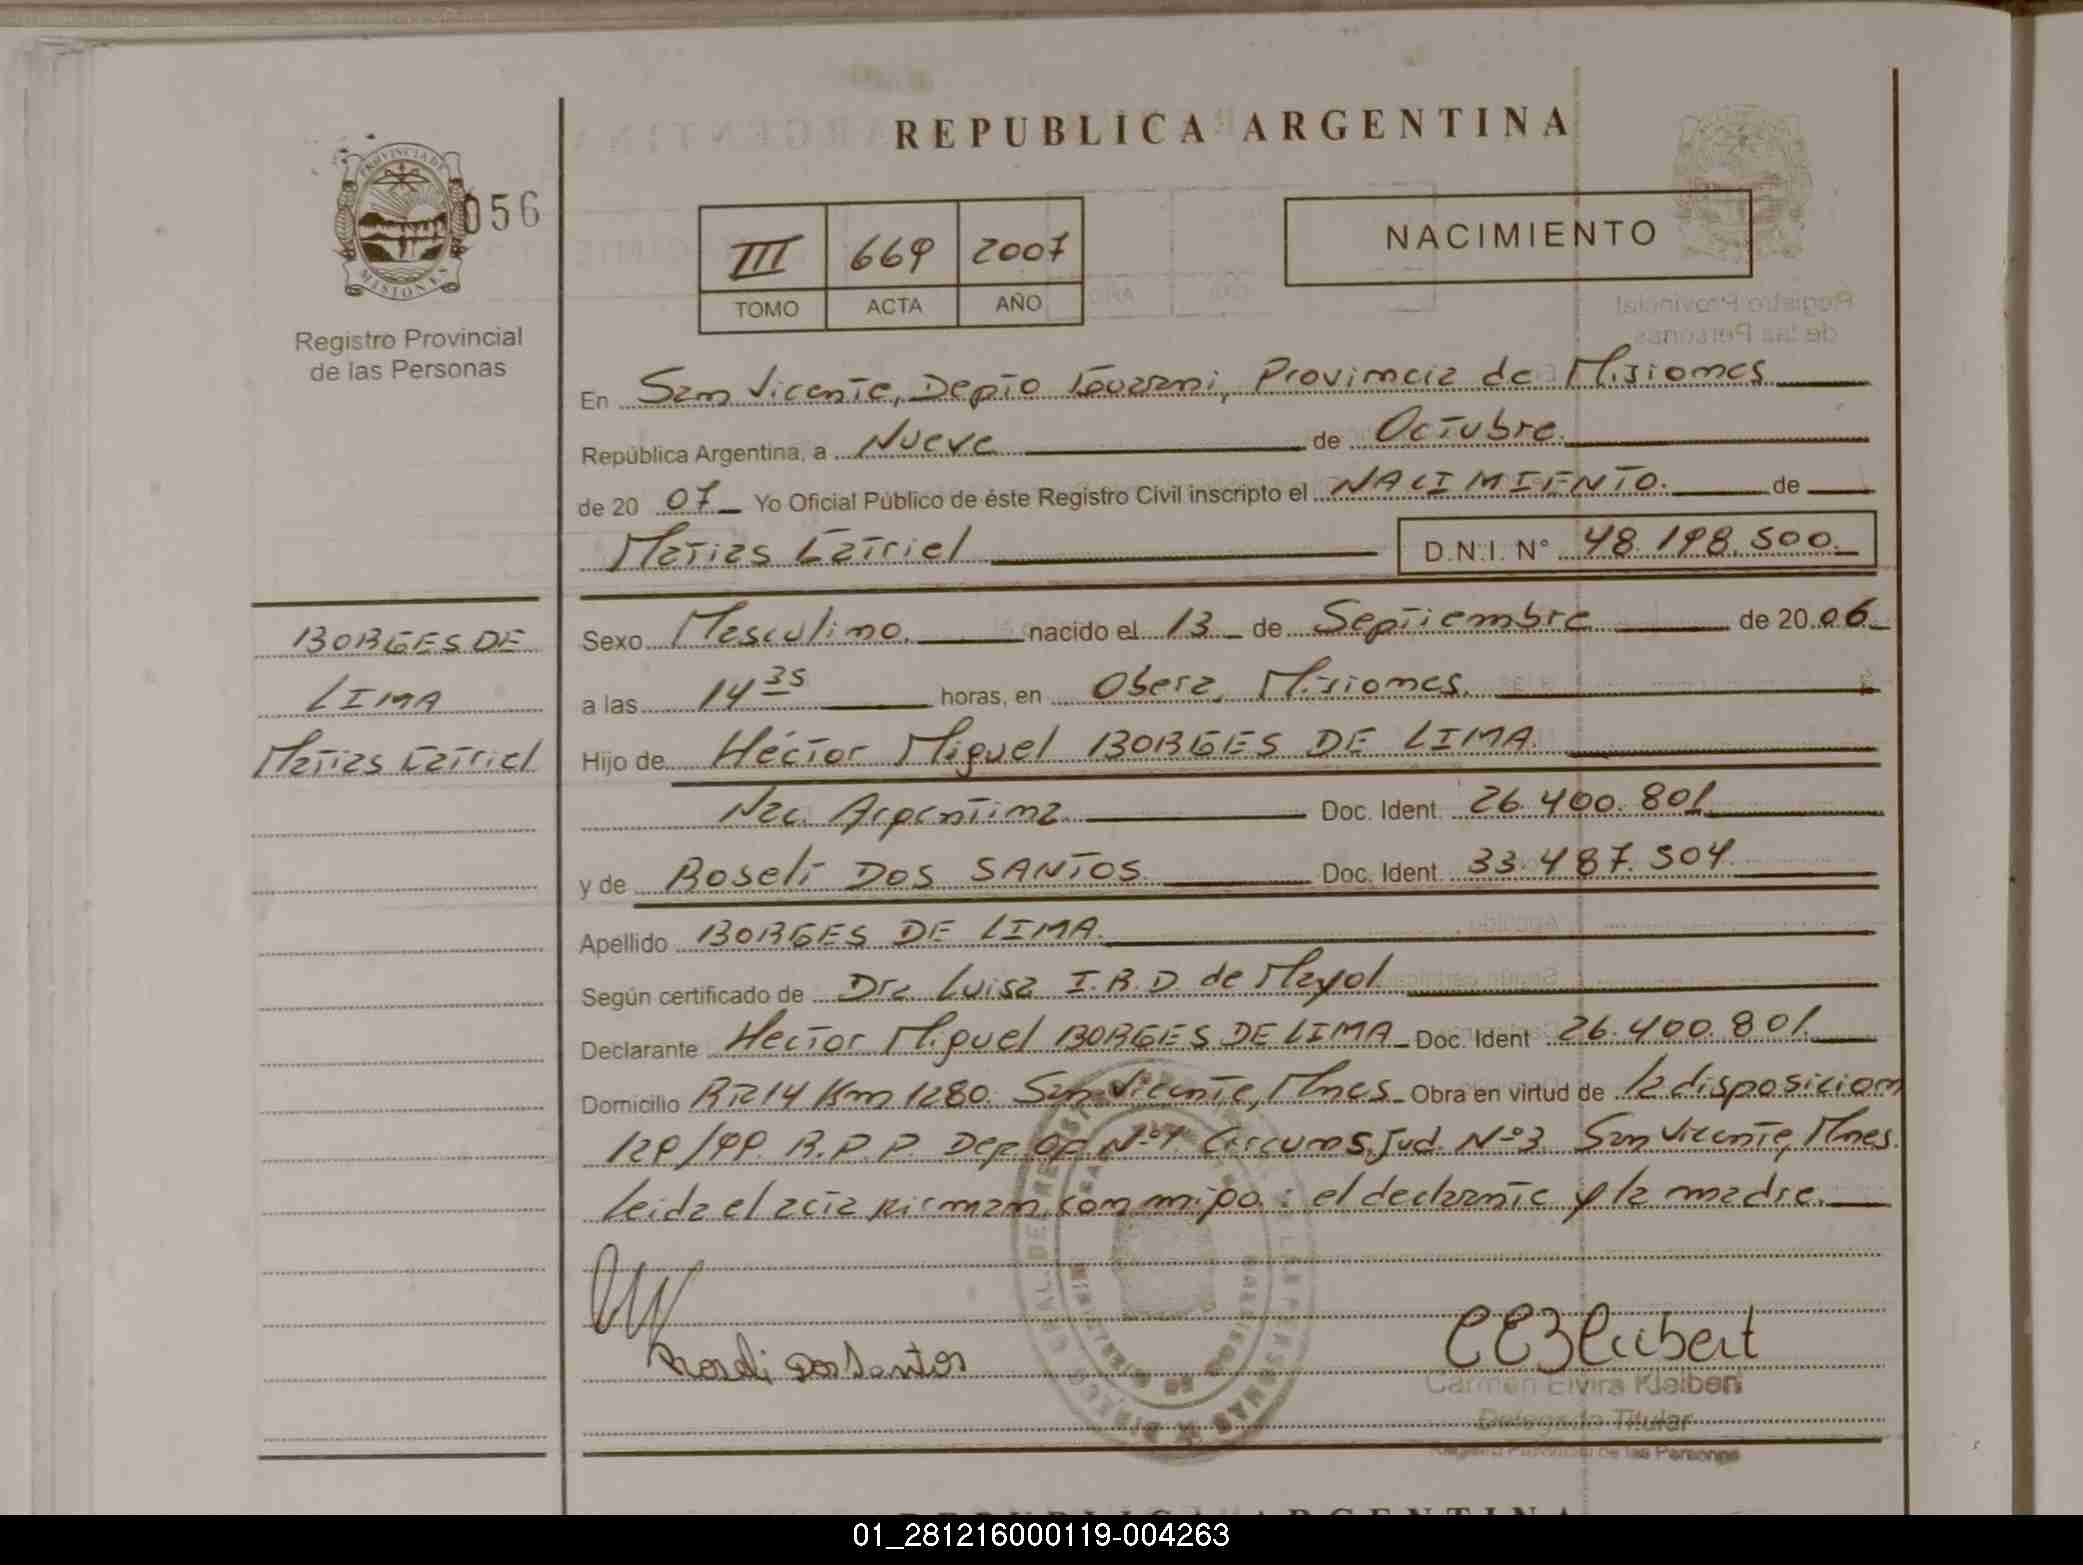 REPUBLICA ARGENTINA
PROVINCIA DE
MISIONES
056
Registro Provincial
de las Personas
III 669 2007
TOMO ACTA AÑO
NACIMIENTO
En San Vicente, Depto Guarani, Provincia de Misiones
República Argentina, a Nueve de Octubre
de 20 07 Yo Oficial Público de éste Registro Civil inscripto el NACIMIENTO de
Matias Latriel D.N.I. N° 48.198.500
BORGES DE
LIMA
Matias Latriel
Sexo Masculino nacido el 13 de Septiembre de 20 06
a las 14 35 horas, en Obera, Misiones.
Hijo de Héctor Miguel BORGES DE LIMA
Nac. Argentina Doc. Ident. 26.400.801
y de Roseli DOS SANTOS Doc. Ident. 33.487.504
Apellido BORGES DE LIMA
Según certificado de Dra Luisa I.R.D. de Mayol
Declarante Hector Miguel BORGES DE LIMA Doc. Ident 26.400.801
Domicilio RN14 Km 1280. San Vicente, Mnes Obra en virtud de la disposicion
129/99. R.P.P. Dep. Op. N°1. Circuns. Jud. N°3 San Vicente, Mnes.
Leida el acta firman conmigo: el declarante y la madre.
Roseli Dos Santos
Carmen Elvira Kleibert
Delegada Titular
Registro Provincial de las Personas
REPUBLICA ARGENTINA
01_281216000119-004263